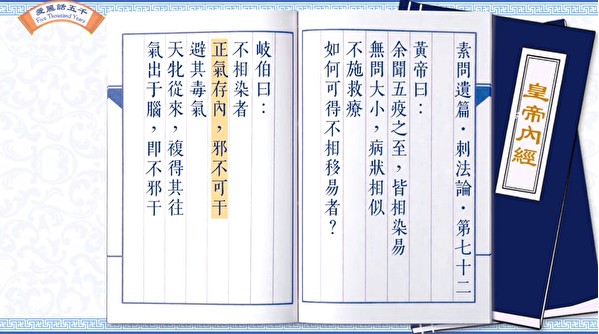 愛麗話五千
Five Thousand Years
皇帝內經
素問遺篇·刺法論·第七十二
黃帝曰：
余聞五疫之至，皆相染易
無問大小，病狀相似
不施救療
如何可得不相移易者？
岐伯曰：
不相染者
正氣存內，邪不可干
避其毒氣
天牝從來，複得其往
氣出于腦，即不邪干